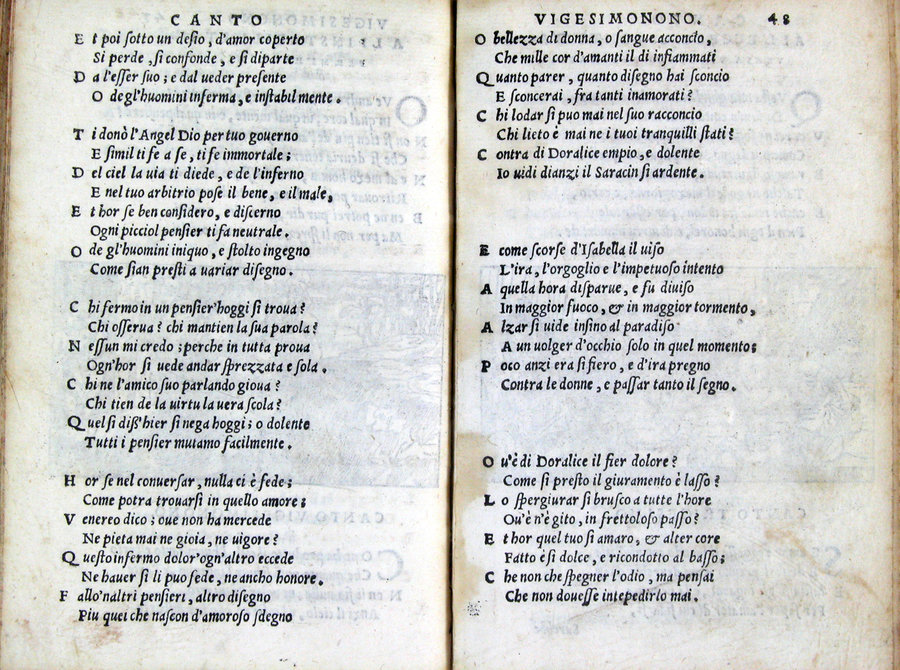 CANTO
E t poi sotto un desio, d'amor coperto
Si perde, si confonde, e si diparte
D a l'esser suo; e dal ueder presente
O de gl'huomini inferma, e instabil mente.
T i donò l'Angel Dio per tuo gouerno
E simil ti fe a se, ti fe immortale;
D el ciel la uia ti diede, e de l'inferno
E nel tuo arbitrio pose il bene, e il male,
E t hor se ben considero, e discerno
Ogni picciol pensier ti fa neutrale.
O de gl'huomini iniquo, e stolto ingegno
Come sian presti a uariar disegno.
C hi fermo in un pensier'hoggi si troua?
Chi osserua? chi mantien la sua parola?
N essun mi credo; perche in tutta proua
Ogn'hor si uede andar sprezzata e sola.
C hi ne l'amico suo parlando gioua?
Chi tien de la uirtu la uera scola?
Q uel si diss'hier si nega hoggi; o dolente
Tutti i pensier mutamo facilmente.
H or se nel conuersar, nulla ci è fede;
Come potra trouarsi in quello amore;
V enereo dico; oue non ha mercede
Ne pieta mai ne gioia, ne uigore?
Q uesto infermo dolor'ogn'altro eccede
Ne hauer si li puo fede, ne ancho honore.
F a llo'n altri pensieri, altro disegno
Piu quei che nascon d'amoroso sdegno
VIGESIMONONO. 48
O bellezza di donna, o sangue acconcio,
Che mille cor d'amanti il di infiammati
Q uanto parer, quanto disegno hai sconcio
E sconcerai, fra tanti inamorati?
C hi lodar si puo mai nel suo racconcio
Chi lieto è mai ne i tuoi tranquilli stati?
C ontra di Doralice empio, e dolente
Io uidi dianzi il Saracin si ardente.
E come scorse d'Isabella il uiso
L'ira, l'orgoglio e l'impetuoso intento
A quella hora disparue, e fu diuiso
In maggior fuoco, & in maggior tormento,
A lzar si uide infino al paradiso
A un uolger d'occhio solo in quel momento;
P oco anzi era si fiero, e d'ira pregno
Contra le donne, e passar tanto il segno.
O u'è di Doralice il fier dolore?
Come si presto il giuramento è lasso?
L o spergiurar si brusco a tutte l'hore
Ou'è n'è gito, in frettoloso passo?
E t hor quel tuo si amaro, & alter core
Fatto è si dolce, e ricondotto al basso;
C he non che spegner l'odio, ma pensai
Che non douesse intepedirlo mai.